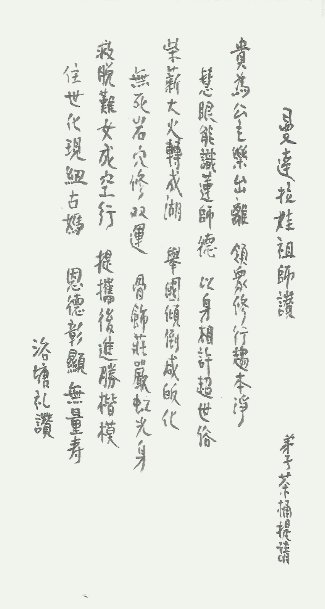 曼達拉娃祖師讚
弟子茶桶提請
貴為公主樂出離 領眾修行趣本淨
慧眼能識蓮師德 以身相許超世俗
柴薪大火轉成湖 舉國傾倒咸皈化
無死岩穴修双運 骨飾莊嚴虹光身
救脫難女成空行 提攜後進勝楷模
住世化現紐古媽 恩德彰顯無量寿
洛塘礼讚